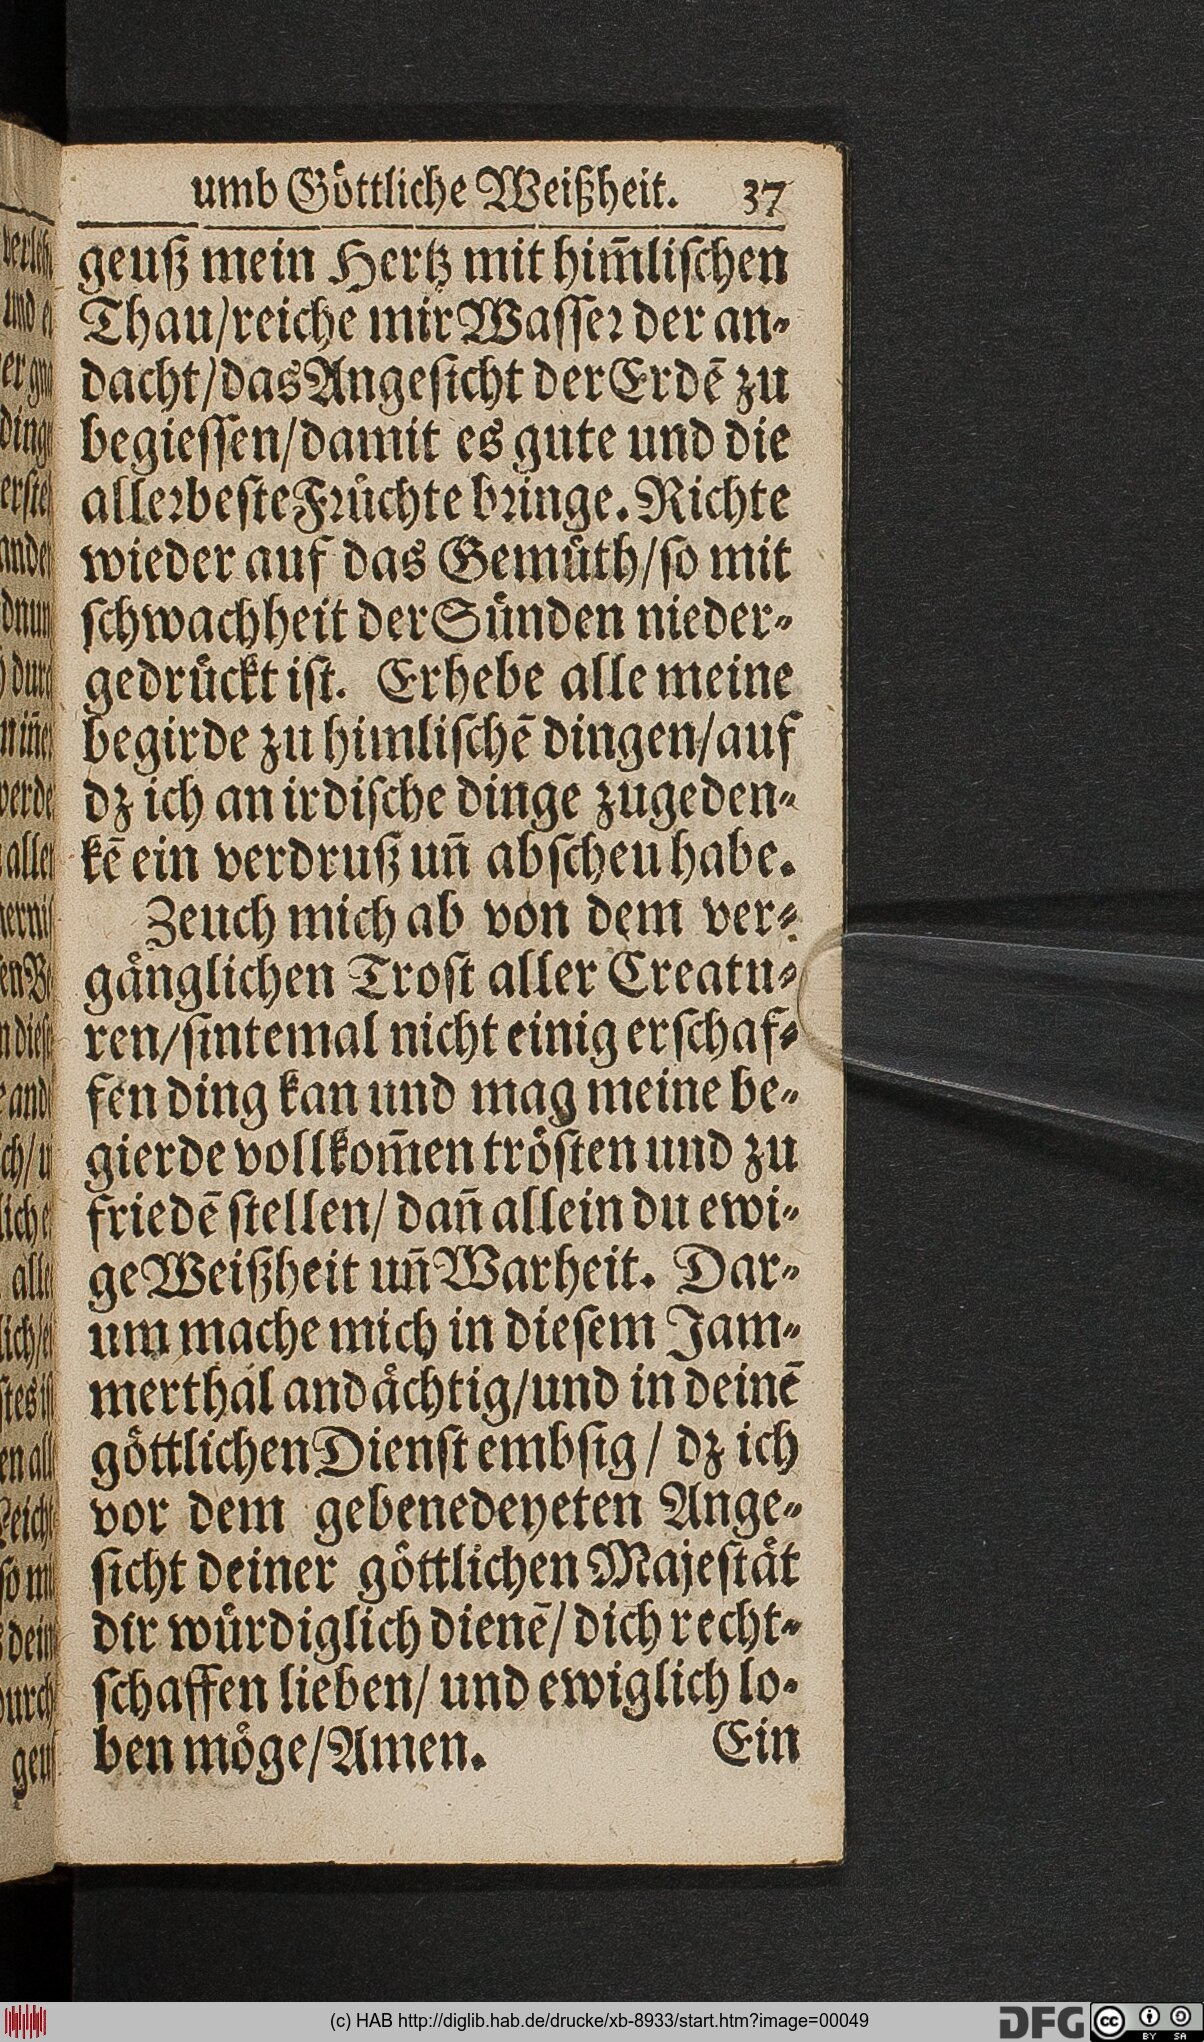 umb Göttliche Weißheit. 37
geuß mein Hertz mit him̃lischen
Thau/reiche mir Wasser der an-
dacht/das Angesicht der Erdẽ zu
begiessen/damit es gute und die
allerbeste Früchte bringe. Richte
wieder auf das Gemüth/so mit
schwachheit der Sünden nieder-
gedrückt ist. Erhebe alle meine
begirde zu himlischẽ dingen/auf
dz ich an irdische dinge zugeden-
kẽ ein verdruß uñ abscheu habe.
Zeuch mich ab von dem ver-
gänglichen Trost aller Creatu-
ren/sintemal nicht einig erschaf-
fen ding kan und mag meine be-
gierde vollkom̃en trösten und zu
friedẽ stellen/dañ allein du ewi-
ge Weißheit uñ Warheit. Dar-
um mache mich in diesem Jam-
merthal andächtig/und in deinẽ
göttlichen Dienst embsig/dz ich
vor dem gebenedeyeten Ange-
sicht deiner göttlichen Majestät
dir würdiglich dienẽ/dich recht-
schaffen lieben/und ewiglich lo-
ben möge/Amen. Ein
(c) HAB http://diglib.hab.de/drucke/xb-8933/start.htm?image=00049
DFG
cc BY SA